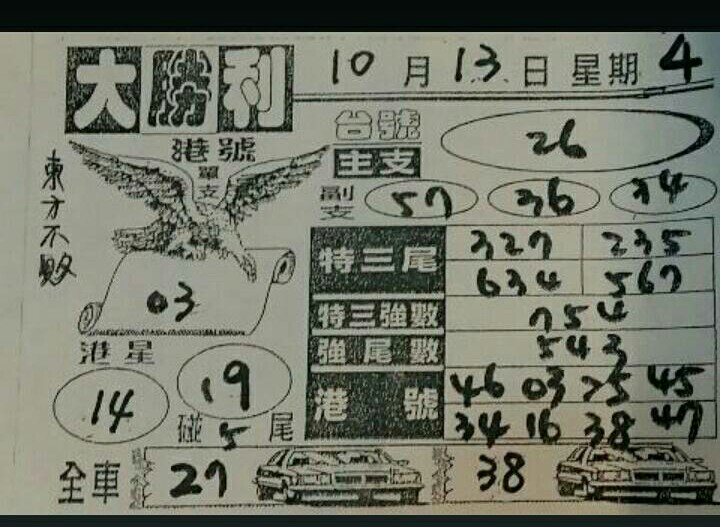 大勝利
10月13日星期4
東方不敗
港號
單支
03
台號
主支
26
副支
57 36 34
特三尾
327 235
634 567
特三強數
754
強尾數
543
港號
46 03 25 45
34 16 38 47
港星
14 19
碰5尾
全車
27 38